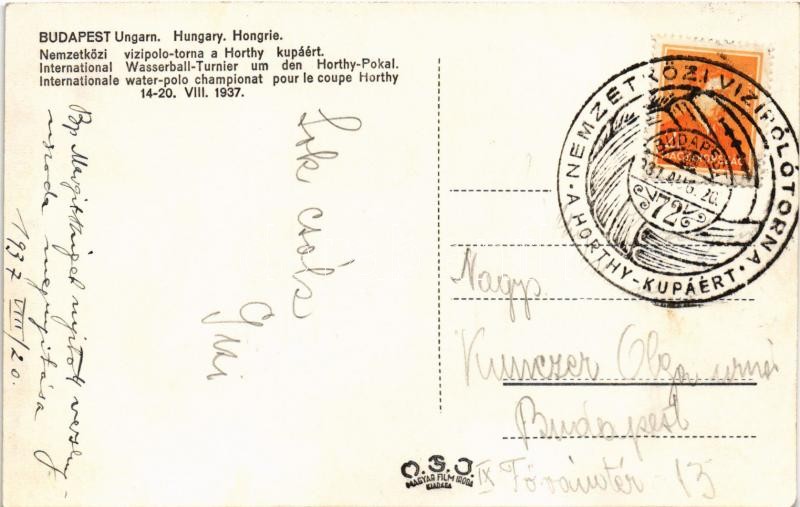 BUDAPEST Ungarn. Hungary. Hongrie.
Nemzetközi vizipolo-torna a Horthy kupáért.
International Wasserball-Turnier um den Horthy-Pokal.
Internationale water-polo championat pour le coupe Horthy
14-20. VIII. 1937.
Bp Margitsziget nyitott verseny-
uszoda megnyitása
1937 VIII/20.
Sok csók
NEMZETKÖZI VIZIPÓLÓTORNA
· A HORTHY-KUPÁÉRT ·
BUDAPEST
937 AUG. 20.
72
MAGYARORSZÁG
Nagys.
Kunczer Olga urnő
Budapest
IX 13
MAGYAR FILM IRODA
KIADÁSA